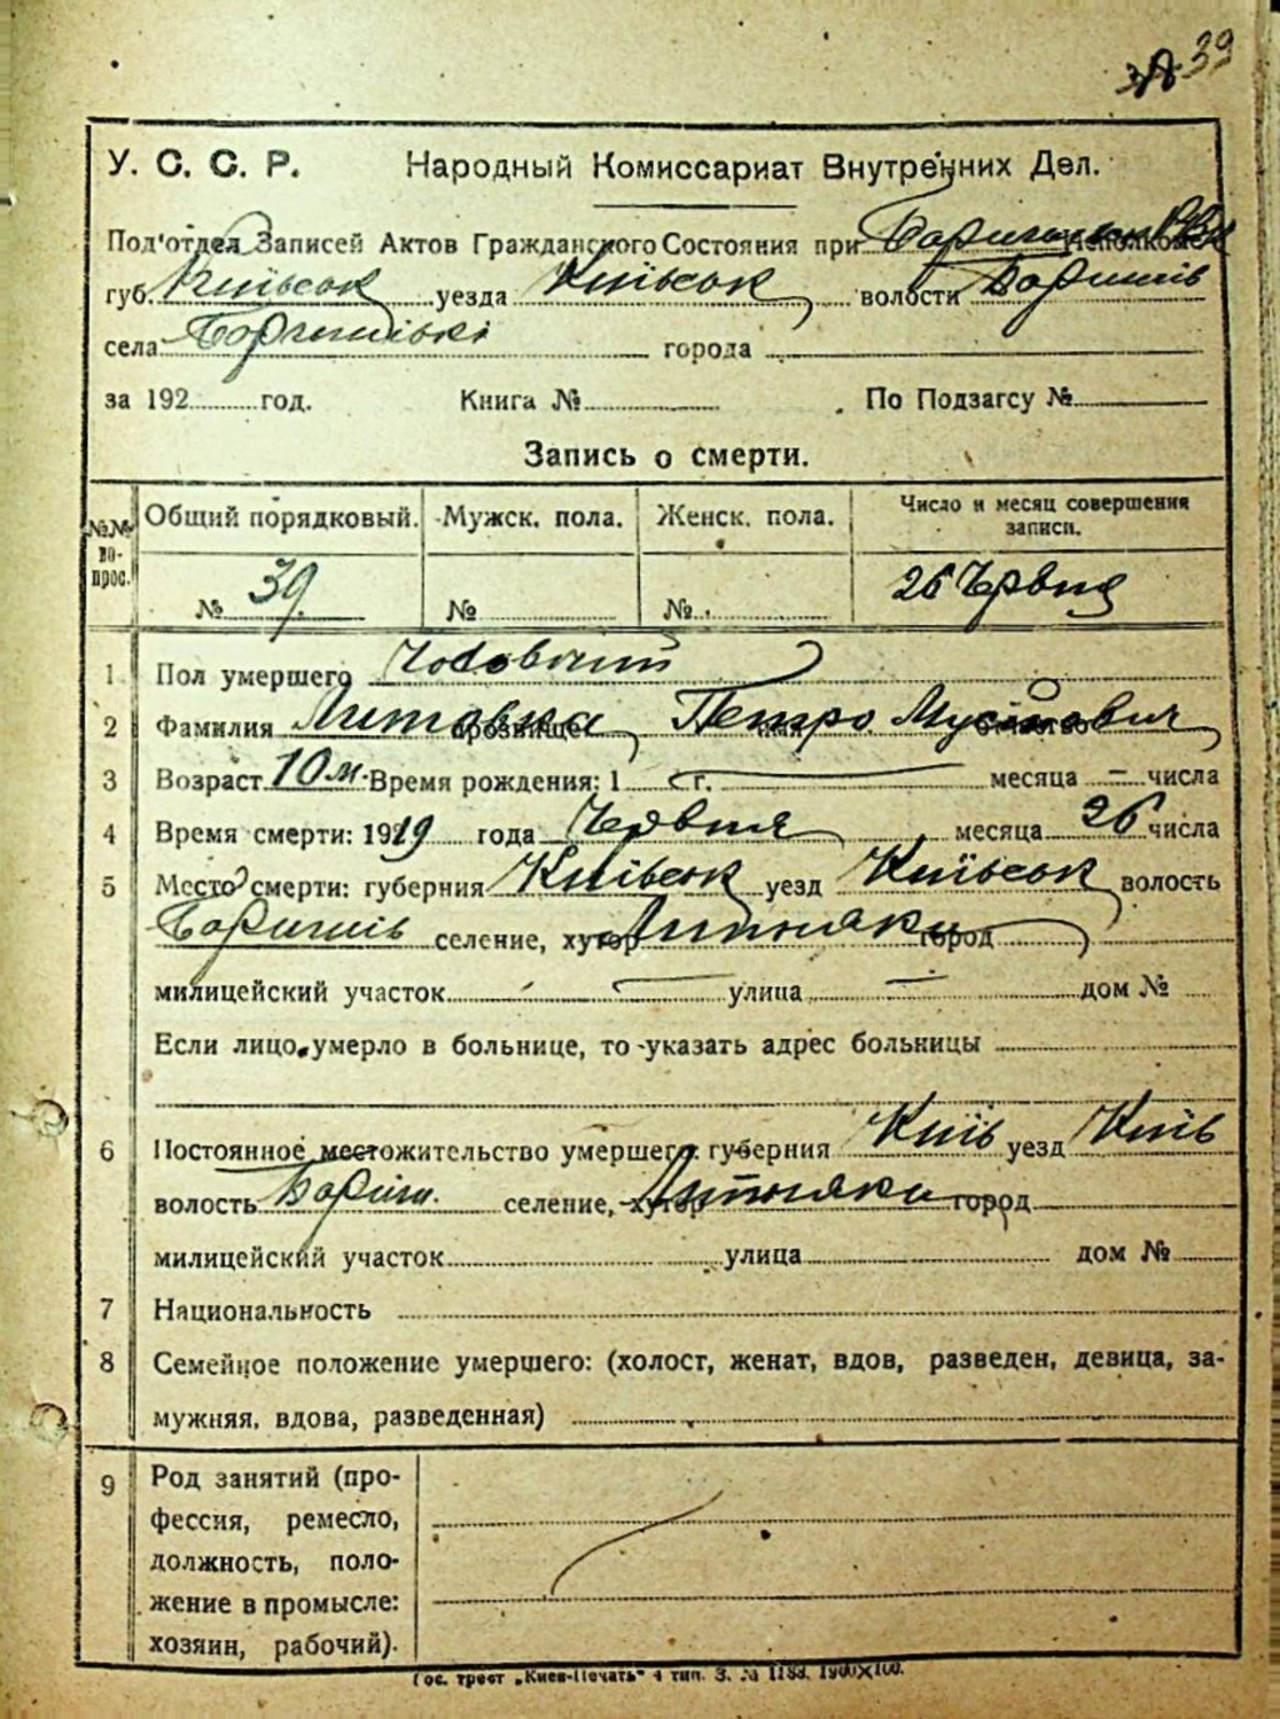 39
У. С. С. Р. Народный Комиссариат Внутренних Дел.
Под'отдел Записей Актов Гражданского Состояния при Исполкоме
губ. Київськ уезда Київськ волости Баришів
села город­а
за 192 год. Книга № По Подзагсу №
Запись о смерти.
№№ во-прос. Общий порядковый. Мужск. пола. Женск. пола. Число и месяц совершения записи.
№ 39. № № 26 Червня
1 Пол умершего Чоловічий
2 Фамилия прозвище Литовка имя Петро отчество
3 Возраст 10 м. Время рождения: 1 г. — месяца — числа
4 Время смерти: 1919 года Червня месяца 26 числа
5 Место смерти: губерния Київськ уезд Київськ волость
Баришів селение, хутор город
милицейский участок — улица — дом №
Если лицо умерло в больнице, то указать адрес больницы
6 Постоянное местожительство умершего: губерния Київ уезд Київ
волость Бариш. селение, хутор город
милицейский участок улица дом №
7 Национальность
8 Семейное положение умершего: (холост, женат, вдов, разведен, девица, за-
мужняя, вдова, разведенная)
9 Род занятий (про-
фессия, ремесло,
должность, поло-
жение в промысле:
хозяин, рабочий).
Гос. трест „Киев-Печать" 4 тип. З. № 1183. 1900×100.